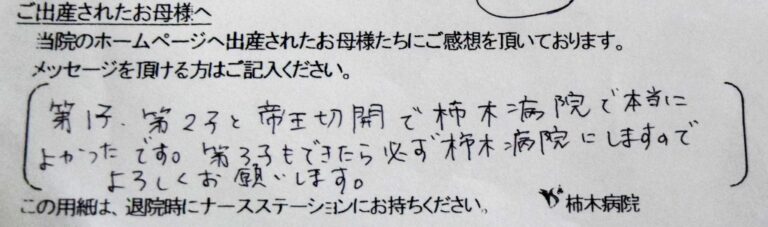 ご出産されたお母様へ
当院のホームページへ出産されたお母様たちにご感想を頂いております。
メッセージを頂ける方はご記入ください。
第1子、第2子と帝王切開で柿木病院で本当に
よかったです。第3子もできたら必ず柿木病院にしますので
よろしくお願いします。
この用紙は、退院時にナースステーションにお持ちください。 柿木病院